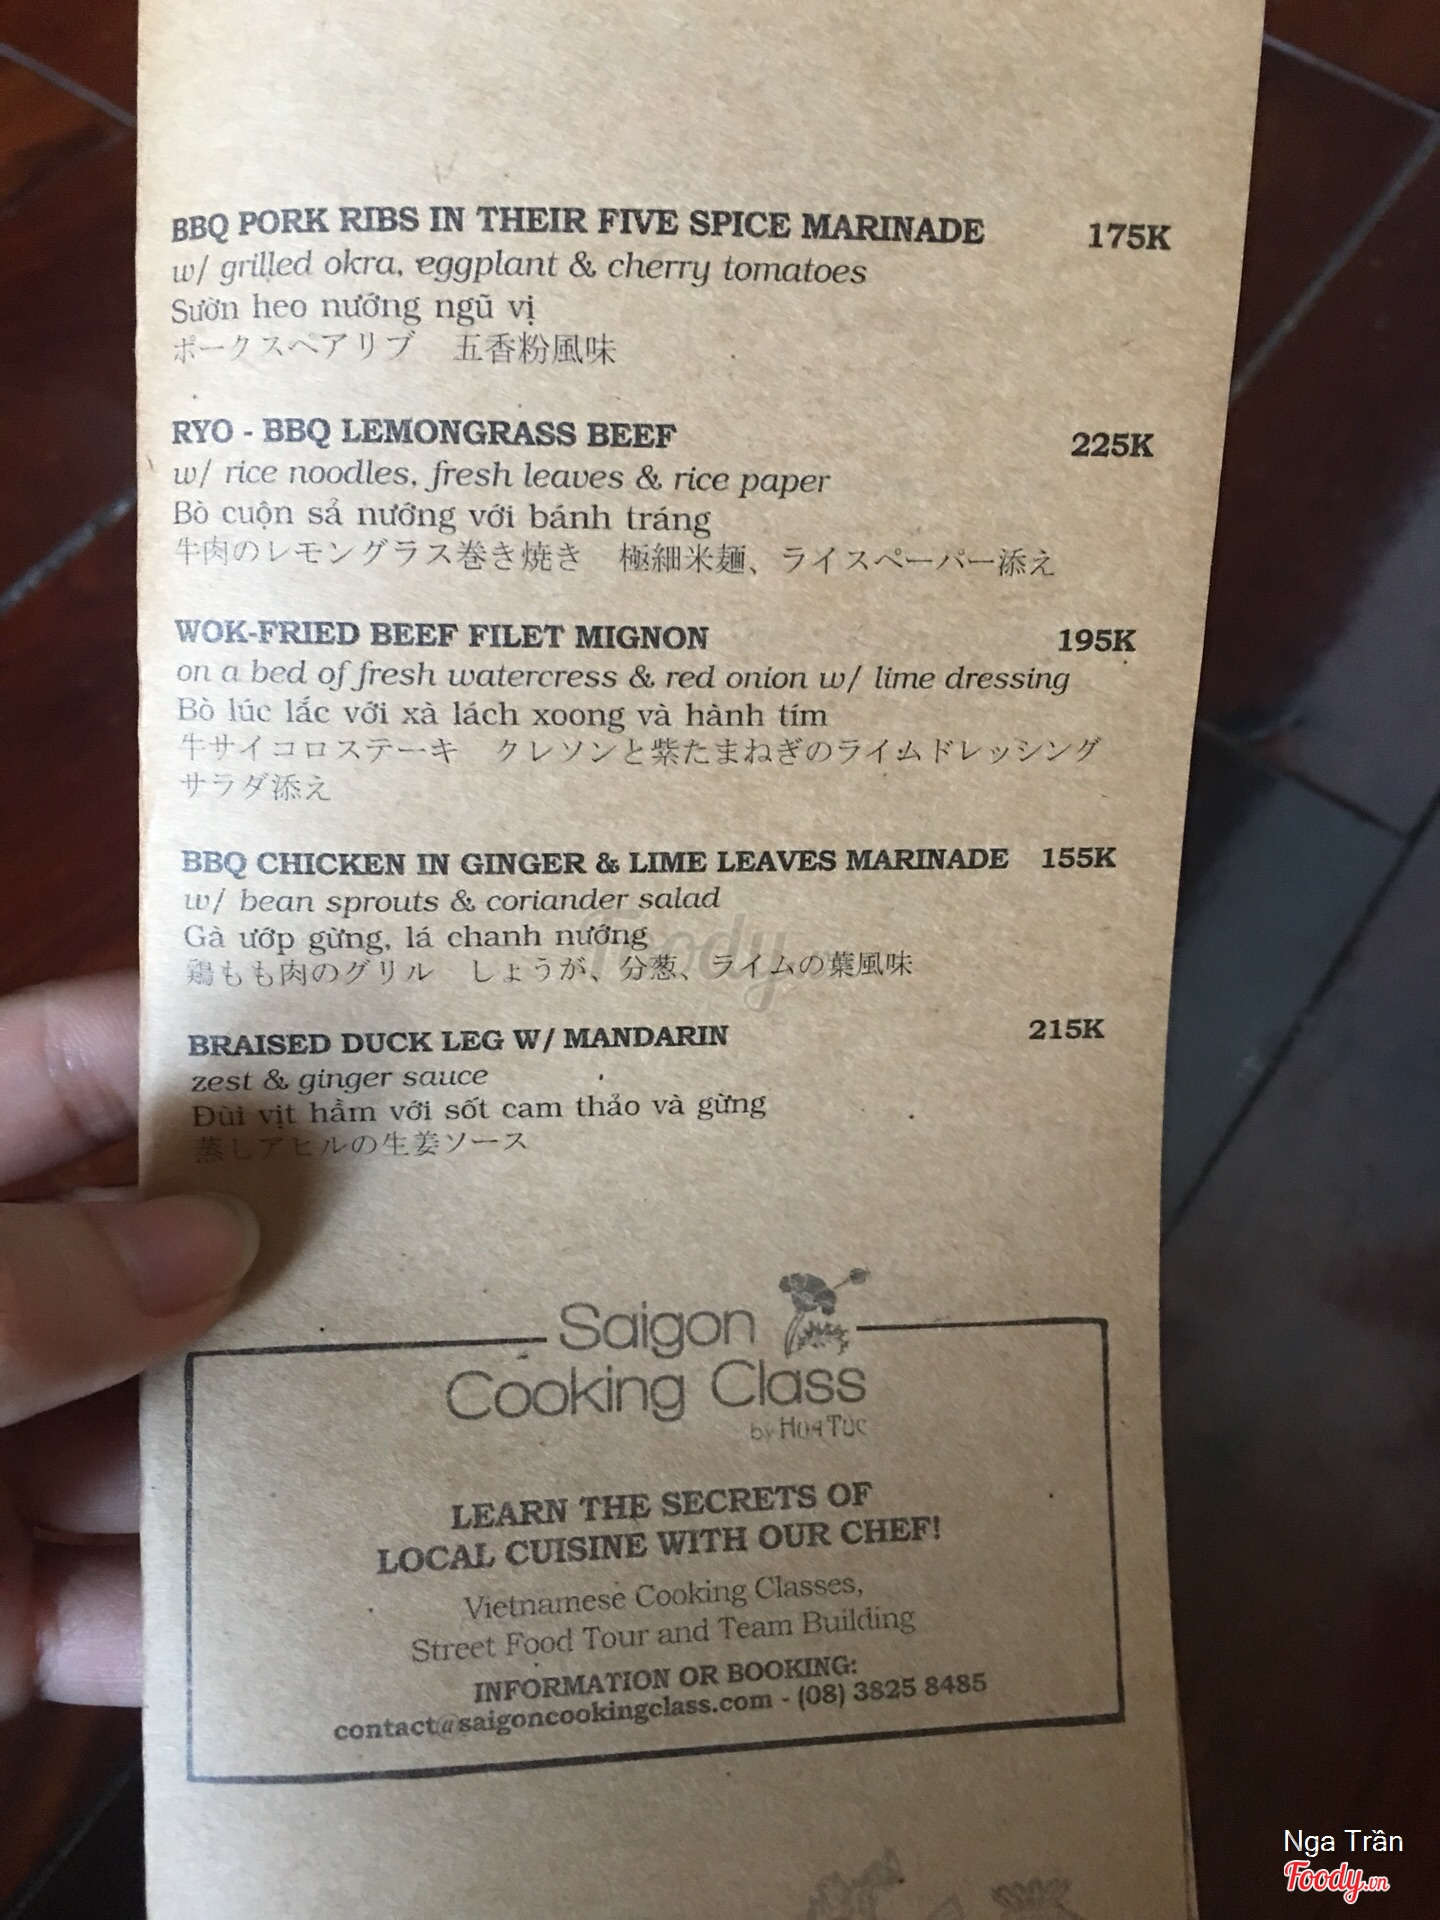 BBQ PORK RIBS IN THEIR FIVE SPICE MARINADE 175K
w/ grilled okra, eggplant & cherry tomatoes
Sườn heo nướng ngũ vị
ポークスペアリブ　五香粉風味
RYO - BBQ LEMONGRASS BEEF 225K
w/ rice noodles, fresh leaves & rice paper
Bò cuộn sả nướng với bánh tráng
牛肉のレモングラス巻き焼き　極細米麺、ライスペーパー添え
WOK-FRIED BEEF FILET MIGNON 195K
on a bed of fresh watercress & red onion w/ lime dressing
Bò lúc lắc với xà lách xoong và hành tím
牛サイコロステーキ　クレソンと紫たまねぎのライムドレッシング
サラダ添え
BBQ CHICKEN IN GINGER & LIME LEAVES MARINADE 155K
w/ bean sprouts & coriander salad
Gà ướp gừng, lá chanh nướng
鶏もも肉のグリル　しょうが、分葱、ライムの葉風味
BRAISED DUCK LEG W/ MANDARIN 215K
zest & ginger sauce
Đùi vịt hầm với sốt cam thảo và gừng
蒸しアヒルの生姜ソース
Saigon
Cooking Class
by HOA TÚC
LEARN THE SECRETS OF
LOCAL CUISINE WITH OUR CHEF!
Vietnamese Cooking Classes,
Street Food Tour and Team Building
INFORMATION OR BOOKING:
contact@saigoncookingclass.com - (08) 3825 8485
Foody.vn
Nga Trần
Foody.vn